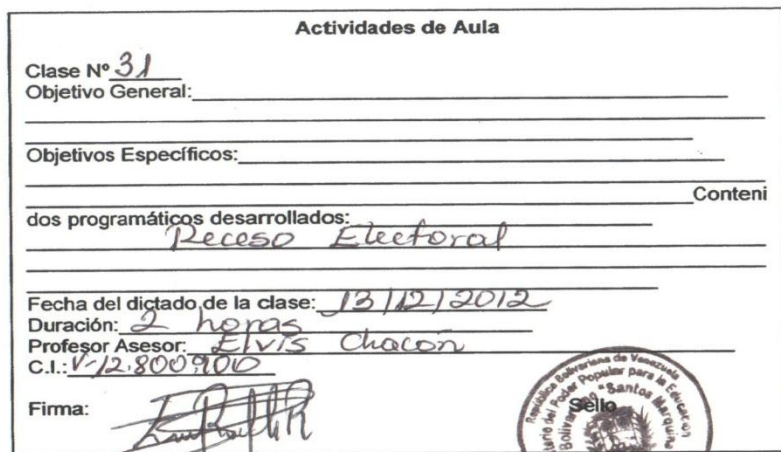 Actividades de Aula
Clase Nº 31
Objetivo General:
Objetivos Específicos:
Conteni
dos programáticos desarrollados:
Receso Electoral
Fecha del dictado de la clase: 13/12/2012
Duración: 2 horas
Profesor Asesor: Elvis Chacón
C.I.: V-12.800.900
Firma:
Sello
República Bolivariana de Venezuela
Ministerio del Poder Popular para la Educación
Bolivariano "Santos Marquina